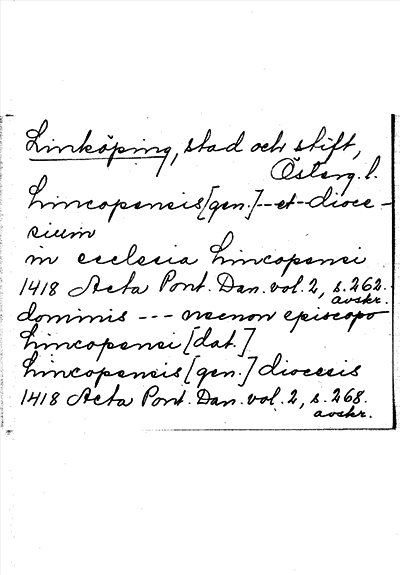 Linköping, stad och stift,
Österg. l.
Lincopensis [gen.] -- et - dioce -
sium
in ecclesia Lincopensi
1418 Acta Pont. Dan. vol. 2, s. 262.
avskr.
dominis --- necnon episcopo
Lincopensi [dat.]
Lincopensis [gen.] diocesis
1418 Acta Pont. Dan. vol. 2, s. 268.
avskr.